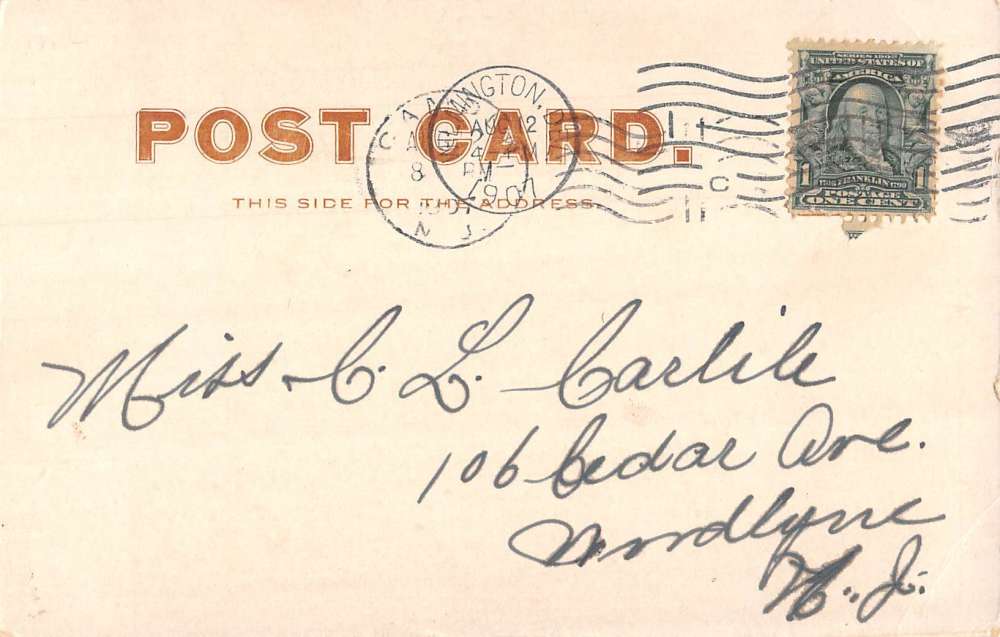 POST CARD.
THIS SIDE FOR THE ADDRESS.
MINGTON,
AUG 12
4 PM
1907
CA
AUG
8 PM
1907
N. J.
C
SERIES 1902
UNITED STATES OF
AMERICA
1 FRANKLIN 1
POSTAGE
ONE CENT
Miss C. L. Carlile
106 Cedar Ave.
Woodlyne
N. J.